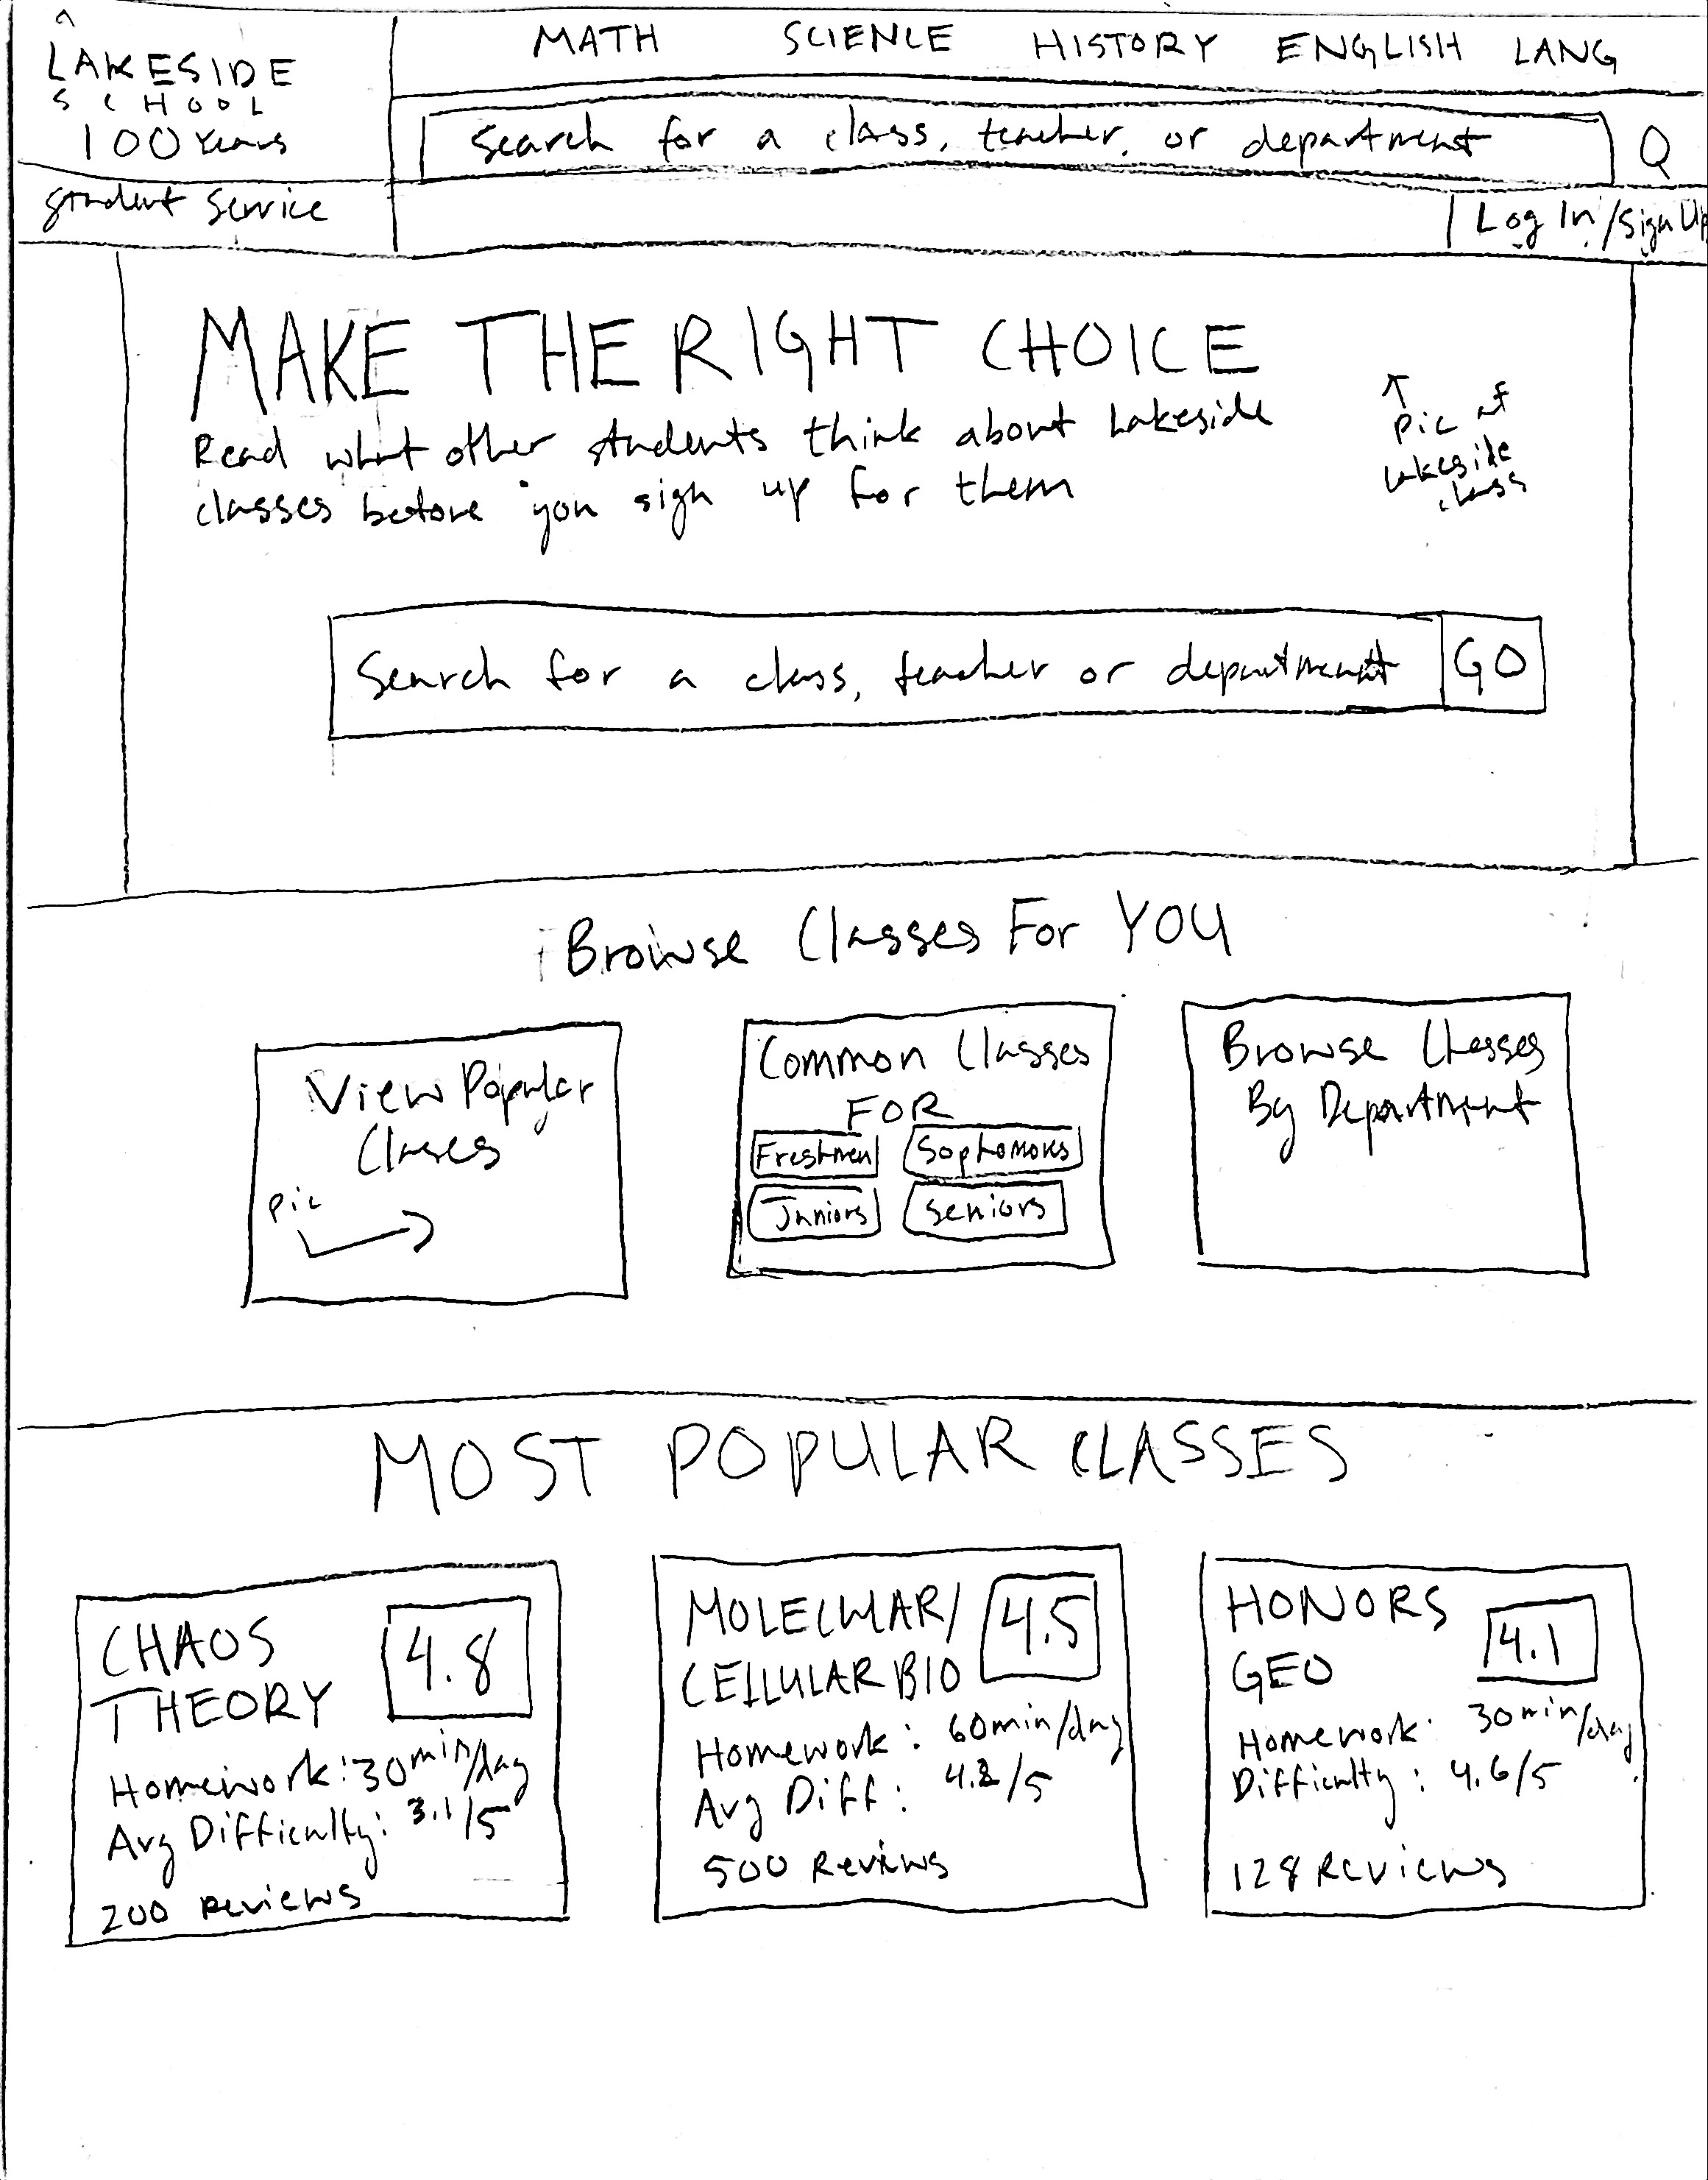 LAKESIDE
SCHOOL
100 Years
Student Service
MATH SCIENCE HISTORY ENGLISH LANG
Search for a class, teacher, or department
Log In/Sign Up
MAKE THE RIGHT CHOICE
Read what other students think about Lakeside
classes before you sign up for them
pic of
lakeside
class
Search for a class, teacher or department GO
Browse Classes For YOU
View Popular
Classes
pic
Common Classes
FOR
Freshmen Sophomores
Juniors Seniors
Browse Classes
By Department
MOST POPULAR CLASSES
CHAOS
THEORY
4.8
Homework: 30min/day
Avg Difficulty: 3.1/5
200 Reviews
MOLECULAR/
CELLULAR BIO
4.5
Homework: 60min/day
Avg Diff: /5
500 Reviews
HONORS
GEO
4.1
Homework: 30min/day
Difficulty: 4.6/5
128 Reviews